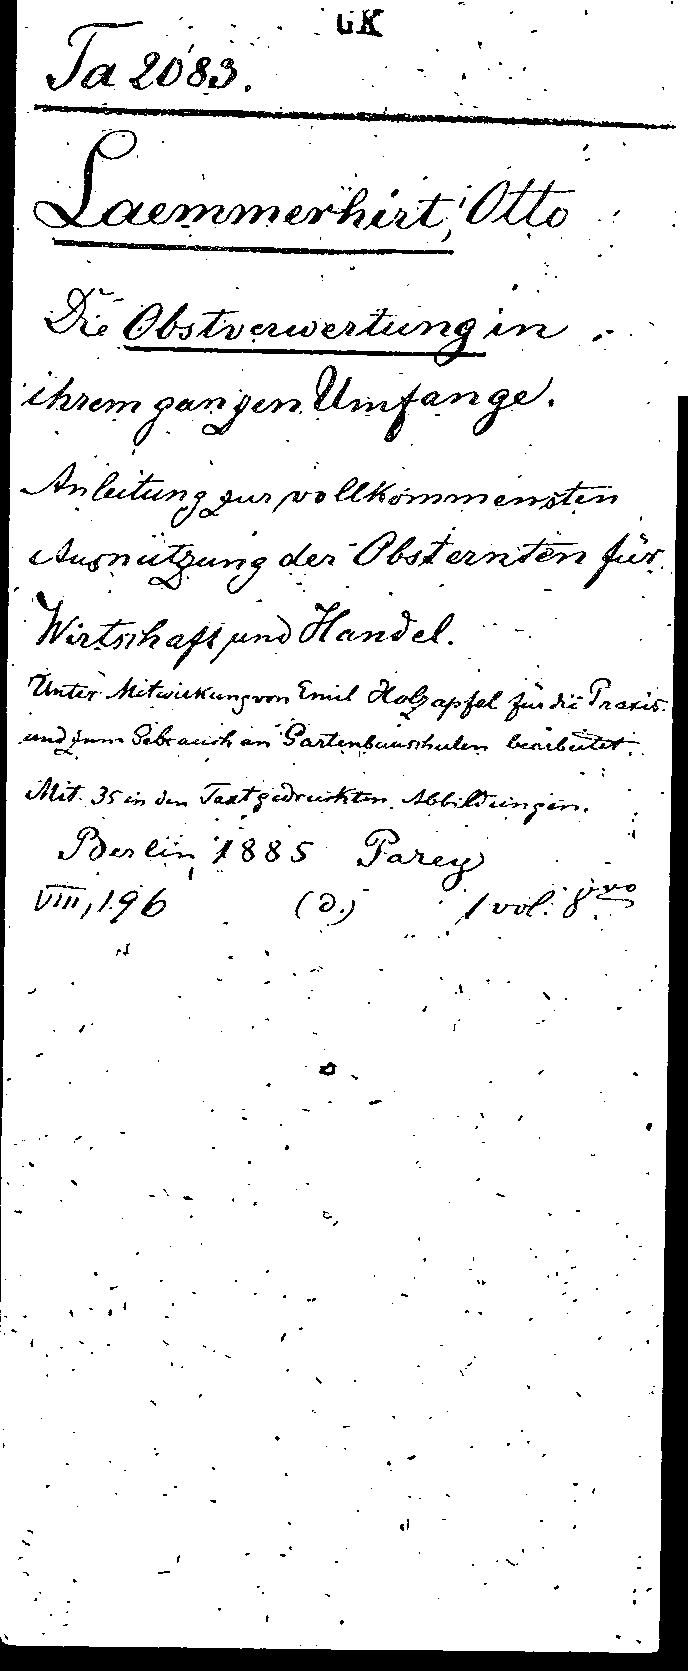 GK
Ta 2083.
Laemmerhirt, Otto
Die Obstverwertung in
ihrem ganzen Umfange.
Anleitung zur vollkommensten
Ausnützung der Obsternten für
Wirtschaft und Handel.
Unter Mitwirkung von Emil Holzapfel für die Praxis
und zum Gebrauch an Gartenbauschulen bearbeitet.
Mit 35 in den Text gedruckten Abbildungen.
Berlin, 1885 Parey
VIII, 196 (d.) 1 vol. 8vo